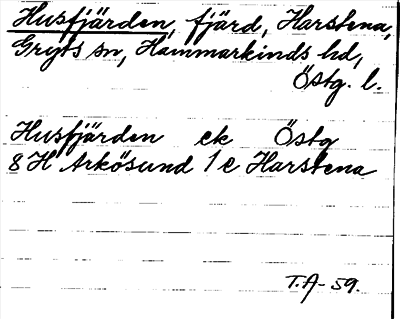 Husfjärden, fjärd, Harstena,
Gryts sn, Hammarkinds hd,
Östg. l.
Husfjärden ek Östg
8 H Arkösund 1 c Harstena
T.A-59.